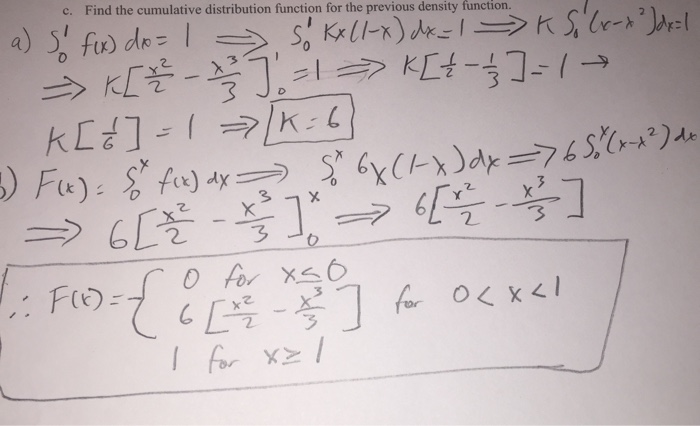 c. Find the cumulative distribution function for the previous density function.
a) ∫₀¹ f(x) dx = 1 ⟹ ∫₀¹ Kx(1-x) dx = 1 ⟹ K ∫₀¹ (x-x²)dx=1
⟹ K[x²/2 - x³/3]₀¹ = 1 ⟹ K[1/2 - 1/3] = 1 →
K[1/6] = 1 ⟹ K=6
b) F(x) = ∫₀ˣ f(x) dx ⟹ ∫₀ˣ 6x(1-x)dx ⟹ 6∫₀ˣ(x-x²)dx
⟹ 6[x²/2 - x³/3]₀ˣ ⟹ 6[x²/2 - x³/3]
∴ F(x) = { 0 for x≤0
6[x²/2 - x³/3] for 0<x<1
1 for x≥1